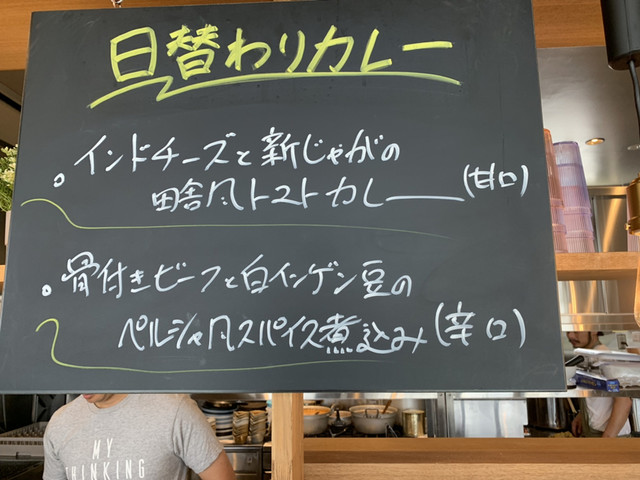 日替わりカレー
インドチーズと新じゃがの
田舎風トマトカレー(甘口)
骨付きビーフと白インゲン豆の
ペルシャ風スパイス煮込み(辛口)
MY
THINKING